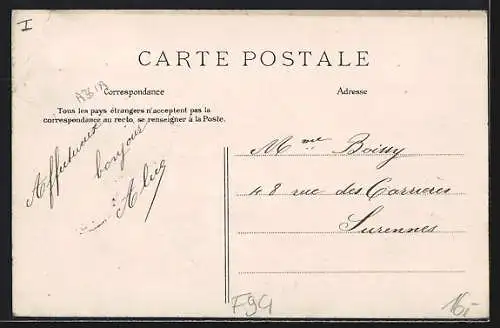 I
CARTE POSTALE
Correspondance
Adresse
Tous les pays étrangers n'acceptent pas la
correspondance au recto, se renseigner à la Poste.
Affectueux
bonjour
Alice
Mme Boissy
48 rue des Carrières
Surennes
F94
16,-